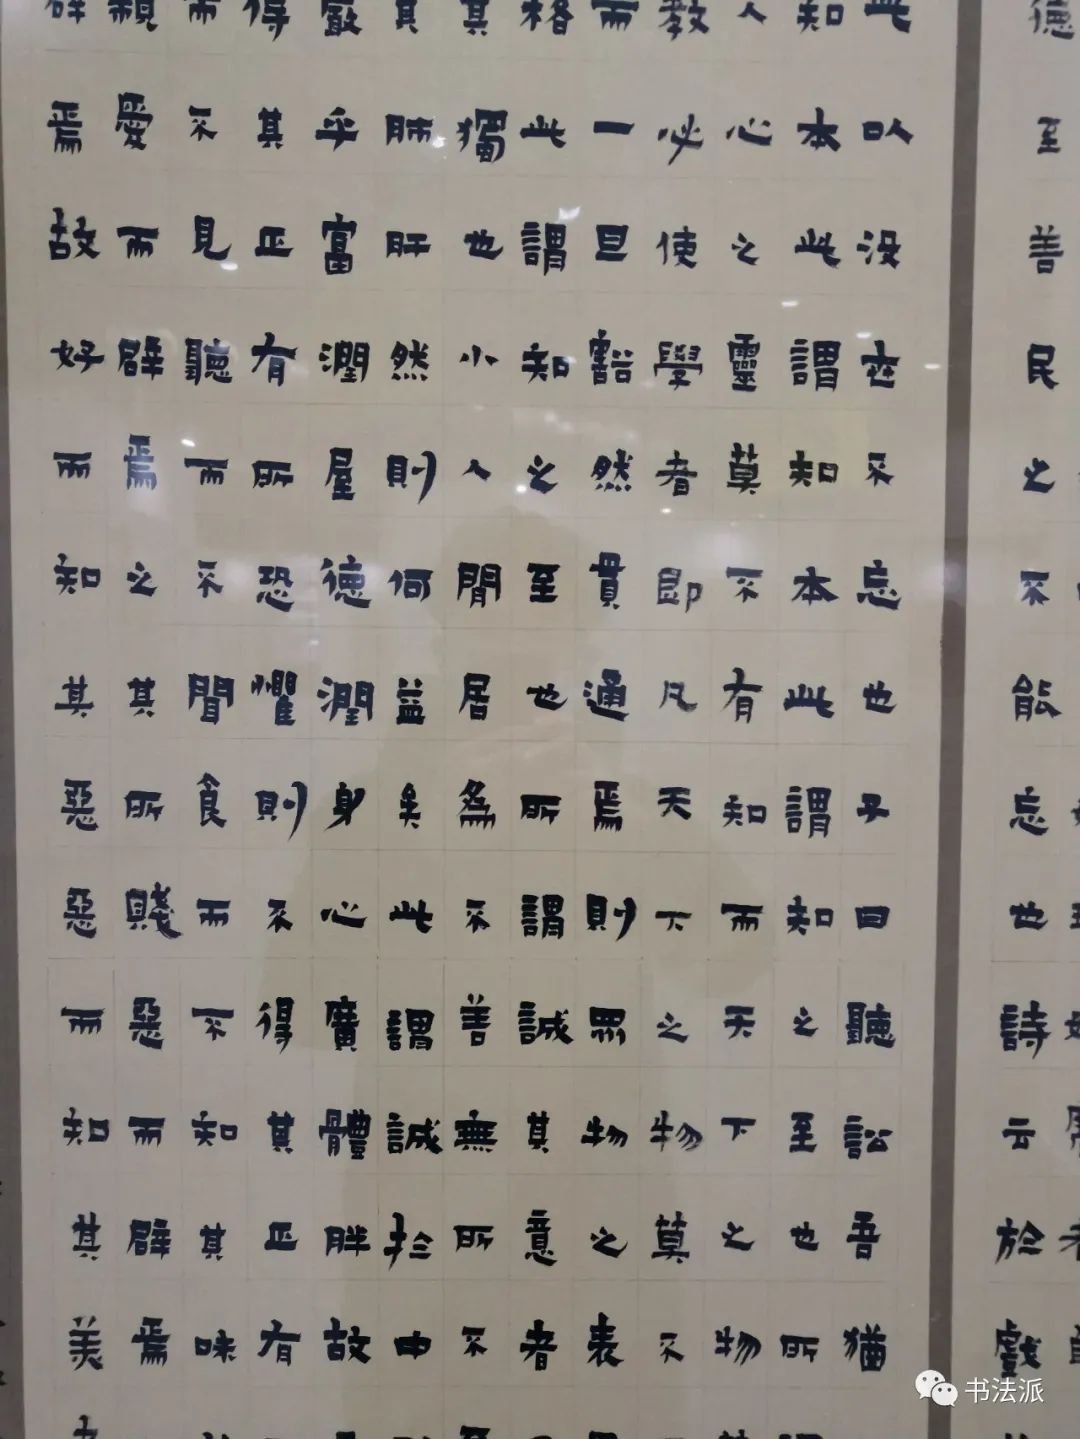 德至善民之不能忘也詩云於戲
此以没世不忘也子曰聽訟吾猶
知本此謂知本此謂知之至也所
人心之靈莫不有知而天下之物
教必使學者即凡天下之物莫不
而一旦豁然貫通焉則眾物之表
格此謂知之至也所謂誠其意者
其獨也小人閒居為不善無所不
其肺肝然則何益矣此謂誠於中
嚴乎富潤屋德潤身心廣體胖故
得其正有所恐懼則不得其正有
而不見聽而不聞食而不知其味
親愛而辟焉之其所賤惡而辟焉
辟焉故好而知其惡惡而知其美
书法派